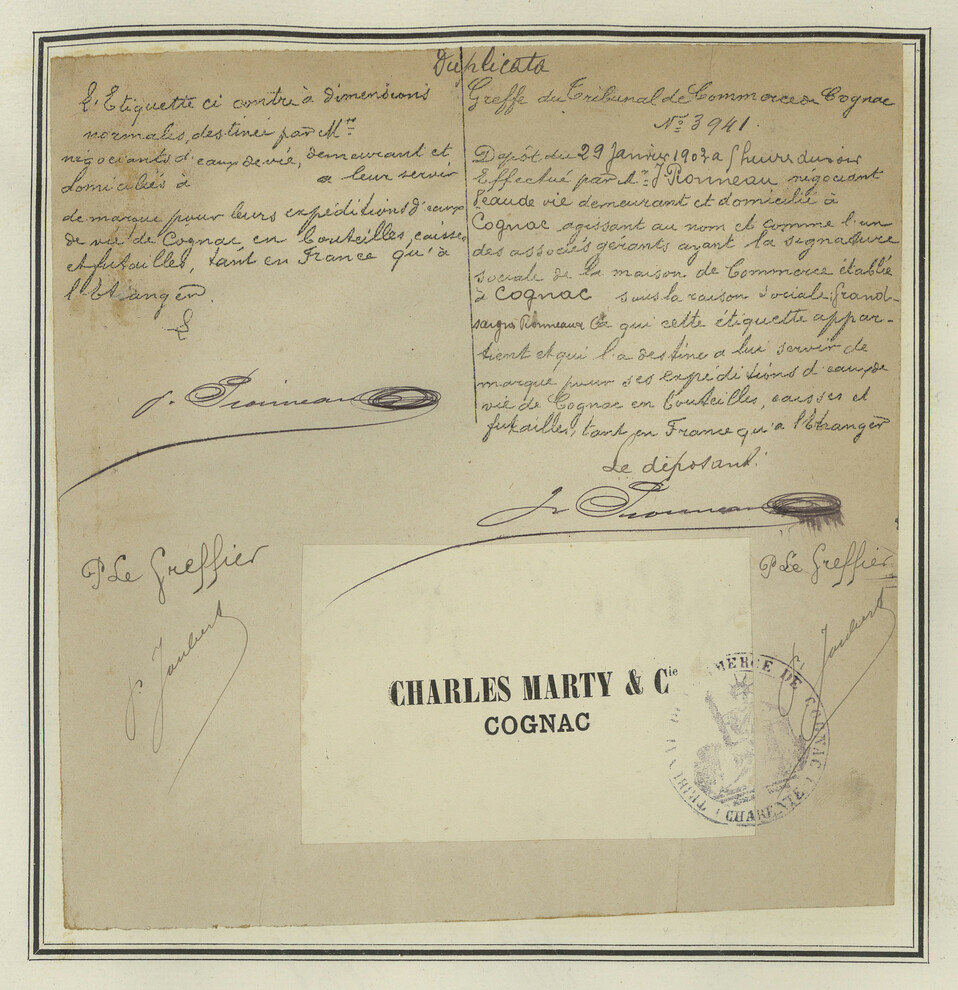 Duplicata
L'Etiquette ci contre à dimensions
normales, destinée par Mrs
négociants d'eaux de vie, demeurant et
domiciliés à a leur servir
de marque pour leurs expéditions d'eaux
de vie de Cognac en bouteilles, caisses
et futailles, tant en France qu'à
l'Etranger.
J. Ronneau
P Le Greffier
P. Joubert
Greffe du Tribunal de Commerce de Cognac
No 3941.
Dépôt du 29 Janvier 1902 a heures du soir
Effectué par Mr J. Ronneau négociant
d'eau de vie demeurant et domicilié à
Cognac agissant au nom et comme l'un
des associés gérants ayant la signature
sociale de la maison de Commerce établie
à Cognac sous la raison sociale Grand-
saigne Ronneaux Cie qui cette étiquette appar-
tient et qui l'a destine a lui servir de
marque pour ses expéditions d'eaux de
vie de Cognac en bouteilles, caisses et
futailles, tant en France qu'a l'Etranger
Le déposant.
J. Ronneau
P Le Greffier
P. Joubert
CHARLES MARTY & Cie
COGNAC
TRIBUNAL DE COMMERCE DE COGNAC
CHARENTE